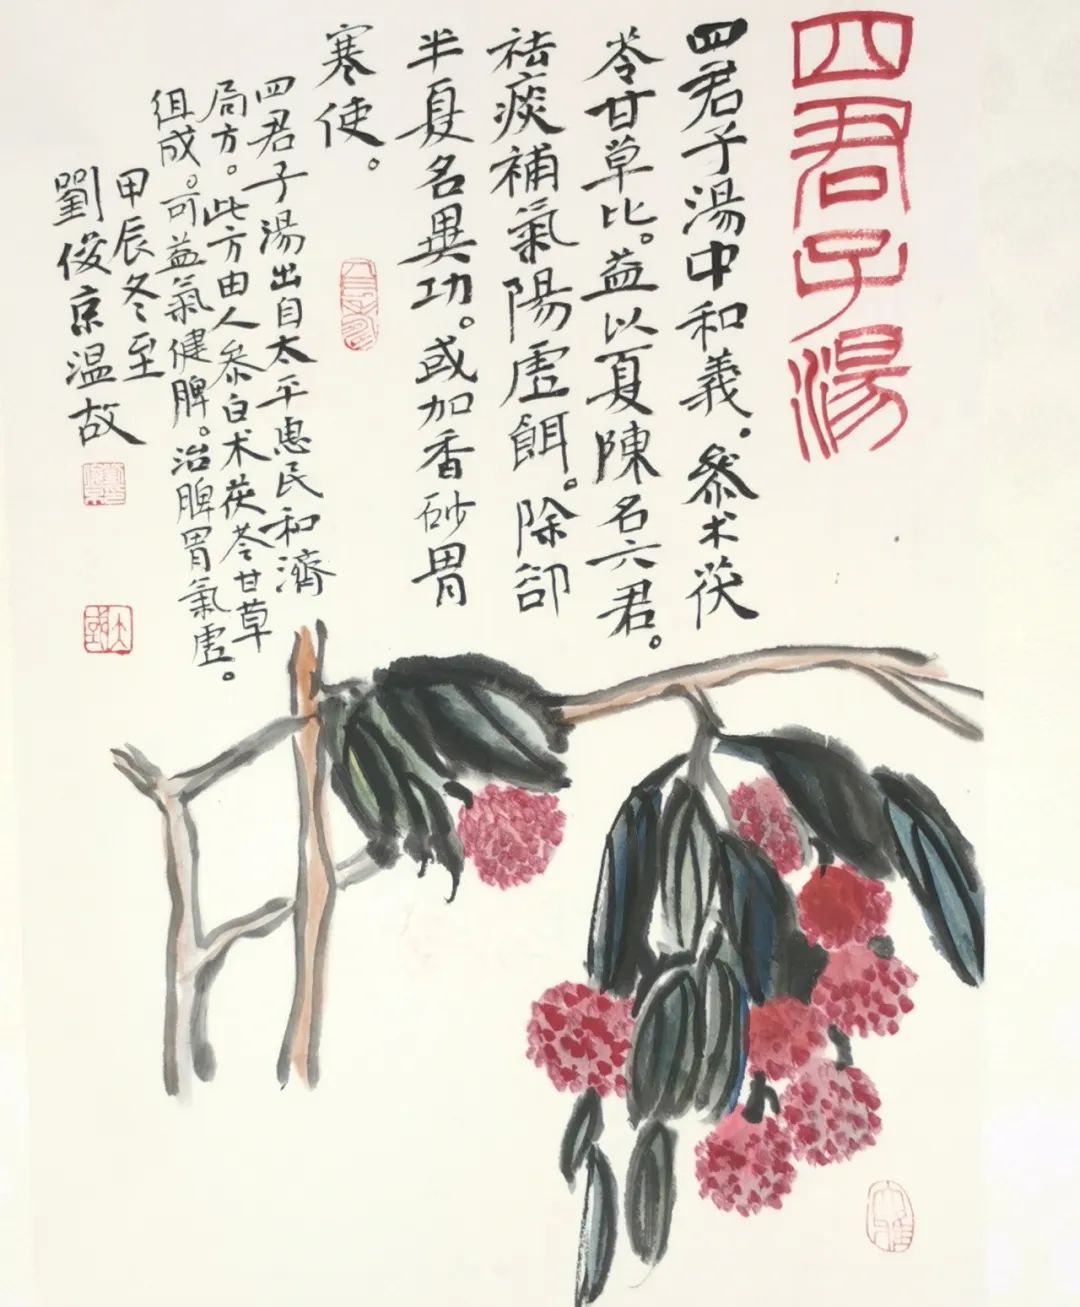 四君子湯
四君子湯中和義。參术茯
苓甘草比。益以夏陳名六君。
祛痰補氣陽虛餌。除卻
半夏名異功。或加香砂胃
寒使。
四君子湯出自太平惠民和濟
局方。此方由人參白术茯苓甘草
组成。可益氣健脾。治脾胃氣虛。
甲辰冬至
劉俊京温故